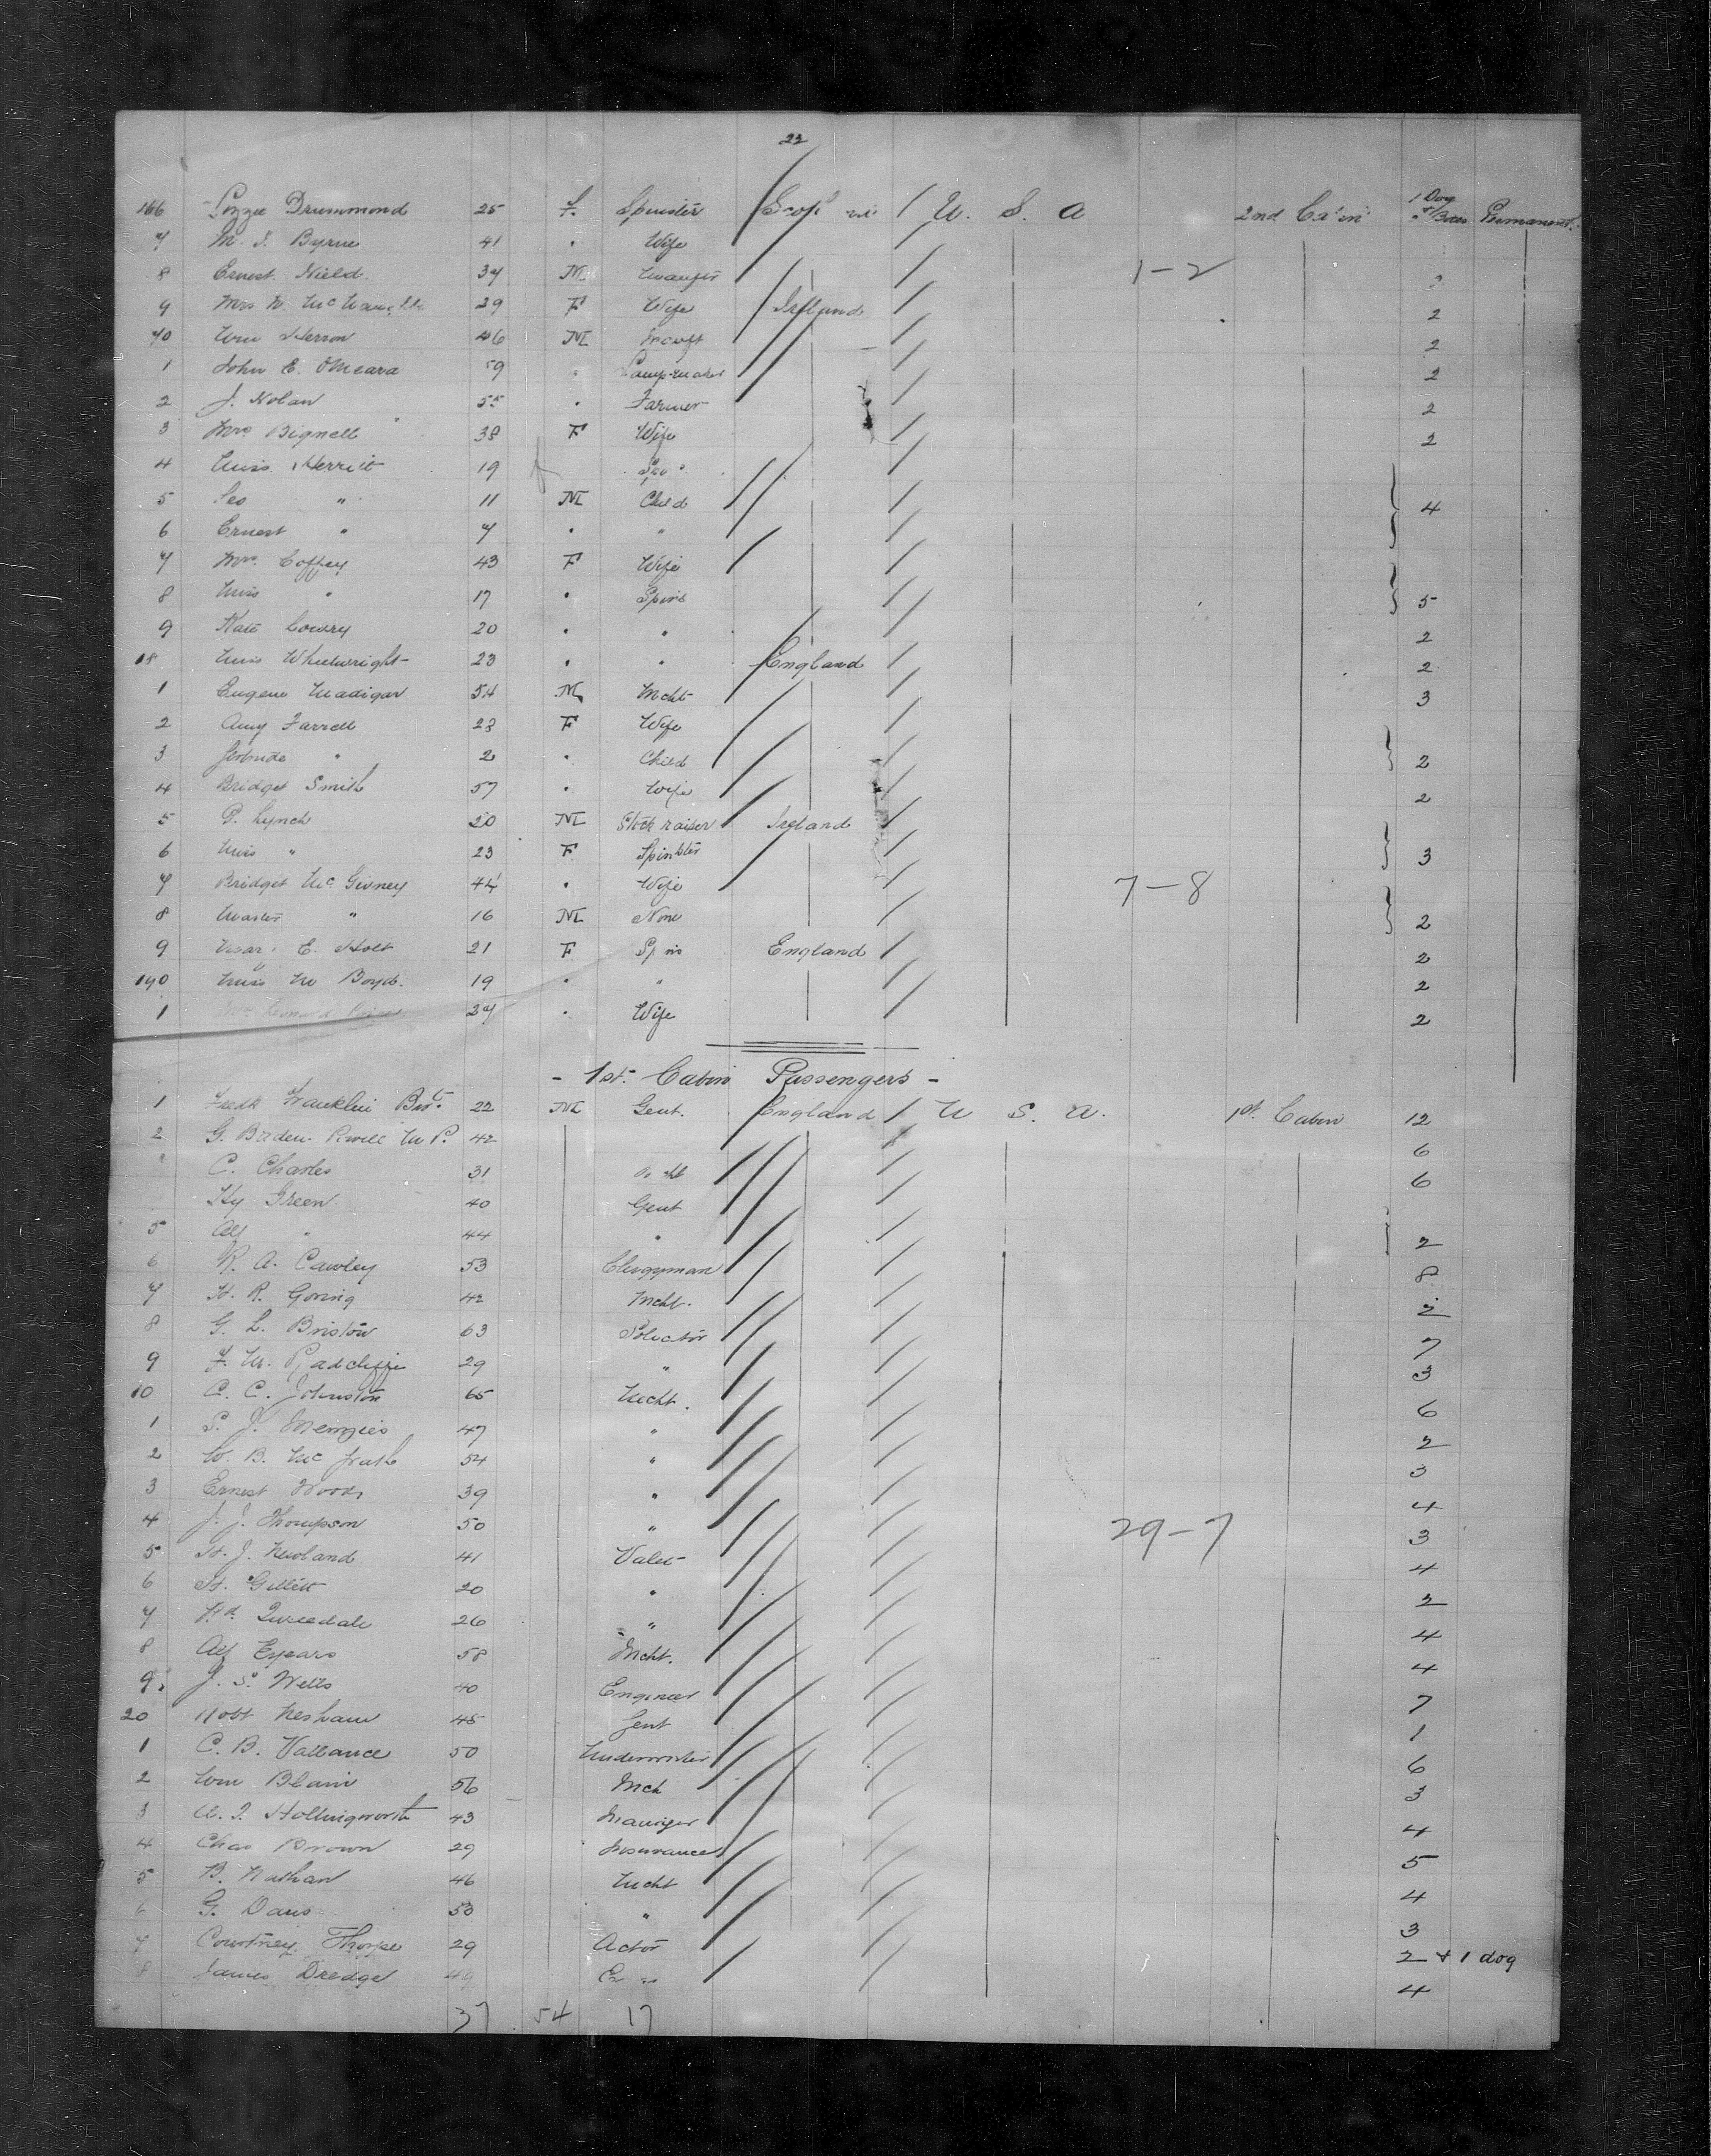 22
166 Lizzie Drummond 25 F. Spinster U. S. A 2nd Ca'in' 1 Dog Permanent.
7 M. J. Byrne 41 " Wife
8 Ernest Nield. 37 M 1-2
9 Mrs 29 F Wife Ireland 2
70 Wm Herron 46 M 2
1 John E. OMeara 59 " Lampmaker 2
2 J. Nolan 55 " Farmer 2
3 Mrs Bignell 38 F Wife 2
4 Miss Herriot 19
5 Leo " 11 M Child 4
6 Ernest " 7 " "
7 Mrs. Coffey 43 F Wife
8 Miss " 17 " Spins 5
9 Kate 20 " " 2
18 Miss Wheelwright 23 " " England 2
1 Eugene Madigan 54 M Mcht 3
2 Amy Farrell 28 F Wife
3 Gertrude " 2 " Child 2
4 Bridget Smith 57 " Wife 2
5 P. Lynch 20 M Stock raiser Ireland
6 Miss " 23 F Spinster 3
7 Bridget McGivney 44 " Wife 7-8
8 Master " 16 M None 2
9 E. Holt 21 F Spin England 2
190 Miss M Boyd. 19 " " 2
1 27 " Wife 2
- 1st. Cabin Passengers -
1 Fredk Franklin Bart. 22 M Gent. England U S. A. 1st. Cabin 12
2 G. Baden Powell M P. 42 6
C. Charles 31 6
Hy Green 40 Gent
5 Alf " 44 " 2
6 R. A. Cawley 53 Clergyman 8
7 H. R. Goring 42 Mcht. 2
8 G. L. Bristow 63 Solictor 7
9 F. M. Radcliffe 29 " 3
10 C. C. Johnston 65 Mcht. 6
1 S. J. Menzies 47 " 2
2 W. B. Mc 54 " 3
3 Ernest Woods 39 " 4
4 J. J. Thompson 50 " 29-7 3
5 H. J. Newland 41 Valet 4
6 H. Gillett 20 " 2
7 Tweedale 26 " 4
8 Alf Eyears 58 Mcht. 4
9 J. S. Wells 40 Engineer 7
20 Robt Nesham 45 Gent 1
1 C. B. Vallance 50 Underwriter 6
2 Wm Blain 56 Mch 3
3 Hollingworth 43 Manager 4
4 Chas Brown 29 Insurance 5
5 B. Nathan 46 Mcht 4
6 G. Davis 53 " 3
7 Courtney Thorpe 29 Actor 2 + 1 dog
8 James Dredge 4
37 54 17